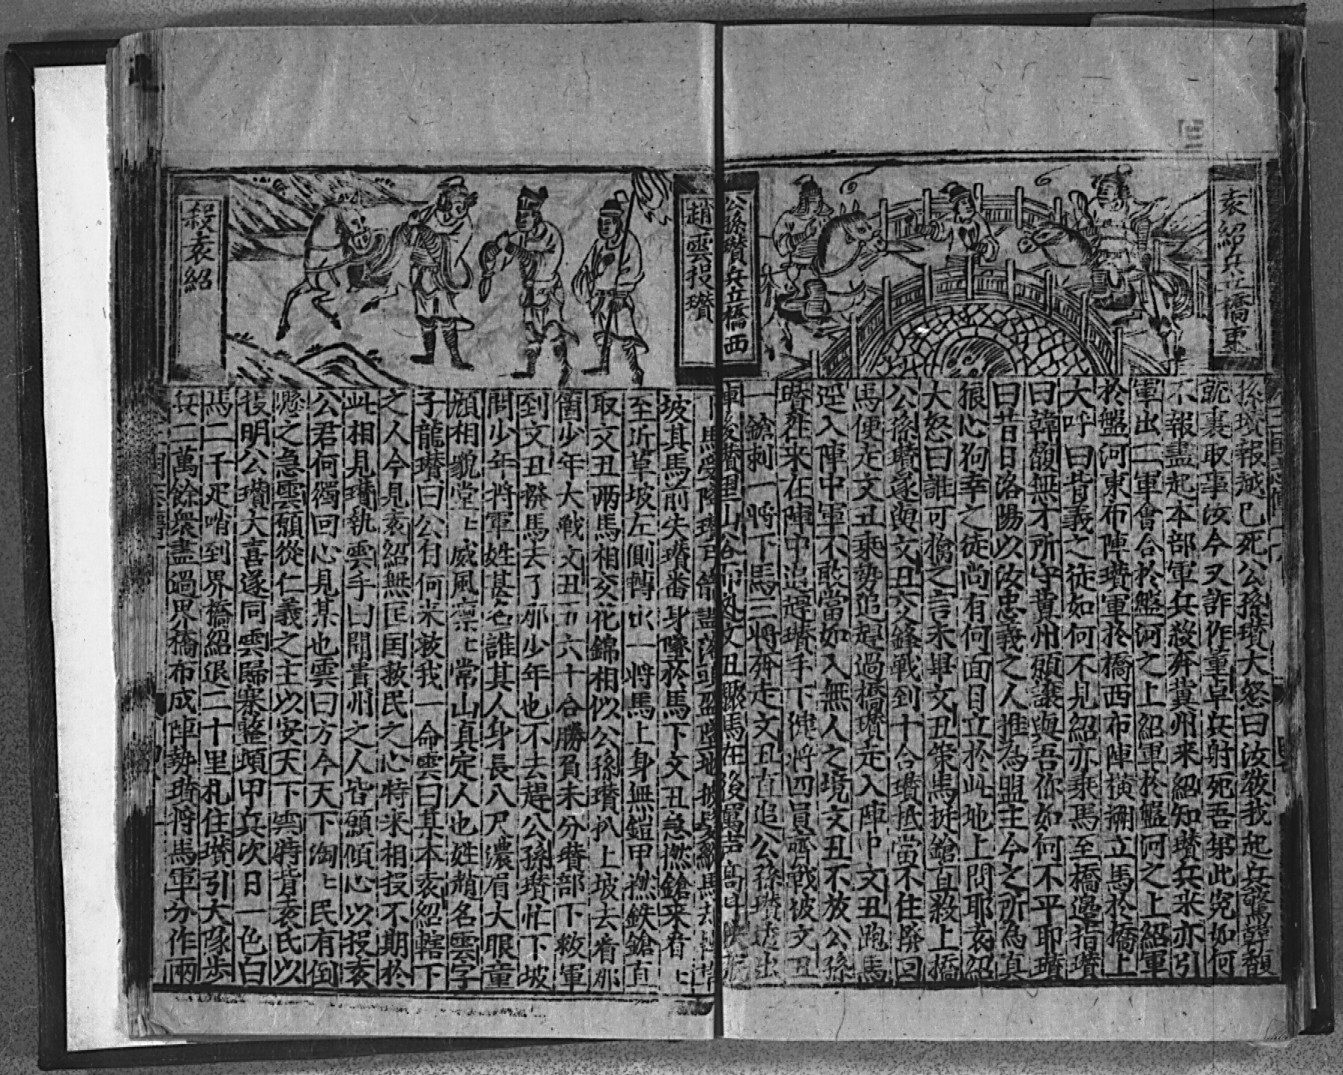 袁紹兵立橋東
公孫瓚兵立橋西
孫瓚報越已死公孫瓚大怒曰汝教我起兵襲韓馥
就裏取事汝今又詐作董卓兵射死吾弟此冤如何
不報盡起本部軍兵殺奔冀州來紹知瓚兵來亦引
軍出二軍會合於盤河之上紹軍於盤河之上紹軍
於盤河東布陣瓚軍於橋西布陣橫槊立馬於橋上
大呼曰背義之徒如何不見紹亦乘馬至橋邊指瓚
曰韓馥無才所守冀州願讓與吾你如何不平耶瓚
曰昔日洛陽以汝忠義之人推為盟主今之所為真
狼心狗幸之徒尚有何面目立於此地上問耶袁紹
大怒曰誰可擒之言未畢文丑策馬挺鎗直殺上橋
公孫瓚遂與文丑交鋒戰到十合瓚抵當不住撥回
馬便走文丑乘勢追趕過橋瓚走入陣中文丑跑馬
逕入陣中軍不敢當如入無人之境文丑不放公孫
瓚在來在陣中追趕瓚手下健將四員齊戰被文丑
一鎗刺一將下馬三將奔走文丑直追公孫瓚透出
陣後瓚望山谷而 文丑驟馬在後厲聲高叫
趙雲投瓚
殺袁紹
下馬受降瓚弓箭盡落頭盔墮地披髮縱馬
坡其馬前失瓚番身墜於馬下文丑急撚鎗來看上
至近草坡左側轉出一將馬上身無鎧甲撚鉄鎗直
取文丑兩馬相交花錦相似公孫瓚扒上坡去看那
個少年大戰文丑五六十合勝負未分瓚部下救軍
到文丑撥馬去了那少年也不去趕公孫瓚忙下坡
問少年將軍姓甚名誰其人身長八尺濃眉大眼童
顏相貌堂上威風凜上常山真定人也姓趙名雲字
子龍瓚曰公自何來救我一命雲曰某本袁紹轄下
之人今見袁紹無匡国救民之心特來相投不期於
此相見瓚執雲手曰問貴州之人皆願傾心以投袁
公君何獨回心見某也雲曰方今天下洶上民有倒
懸之急雲願從仁義之主以安天下雲將背袁氏以
投明公瓚大喜遂同雲歸寨整頓甲兵次日一色白
馬二千疋哨到界橋紹退二十里札住瓚引大隊步
兵二萬餘衆盡過界橋布成陣勢瓚將馬軍分作兩